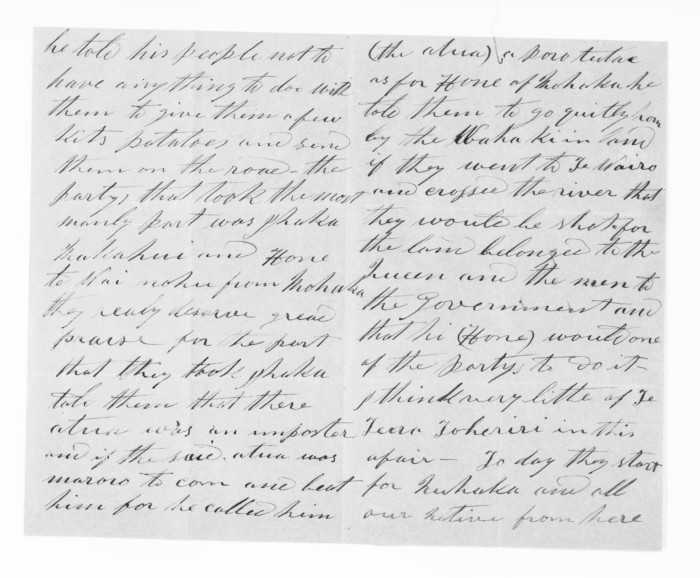 he tole his people not to
have anything to doo with
them to give them a few
kits potatoes and send
them on the road - the
partys that took the most
manly part was Ihaka
Kakahui and Hone
te Wai nohu from Mohaka
they realy deserve great
praise for the part
that they took Ihaka
tole them that there
atua was an imposter
and if the said atua was
maroro to com and beat
him for he called him
(the atua) a poro tutae
as for Hone of Mohaka he
tole them to go quitly home
by the Waka ki in land
if they went to Te Wairo
and crossed the river that
they would be shot - for
the land belonged to the
Queen and the men to
the Government and
that hi (Hone) would one
of the partys to do it -
I think very little of Te
Teira Toheriri in this
afair - To day they start
for Nuhaka and all
our native from here